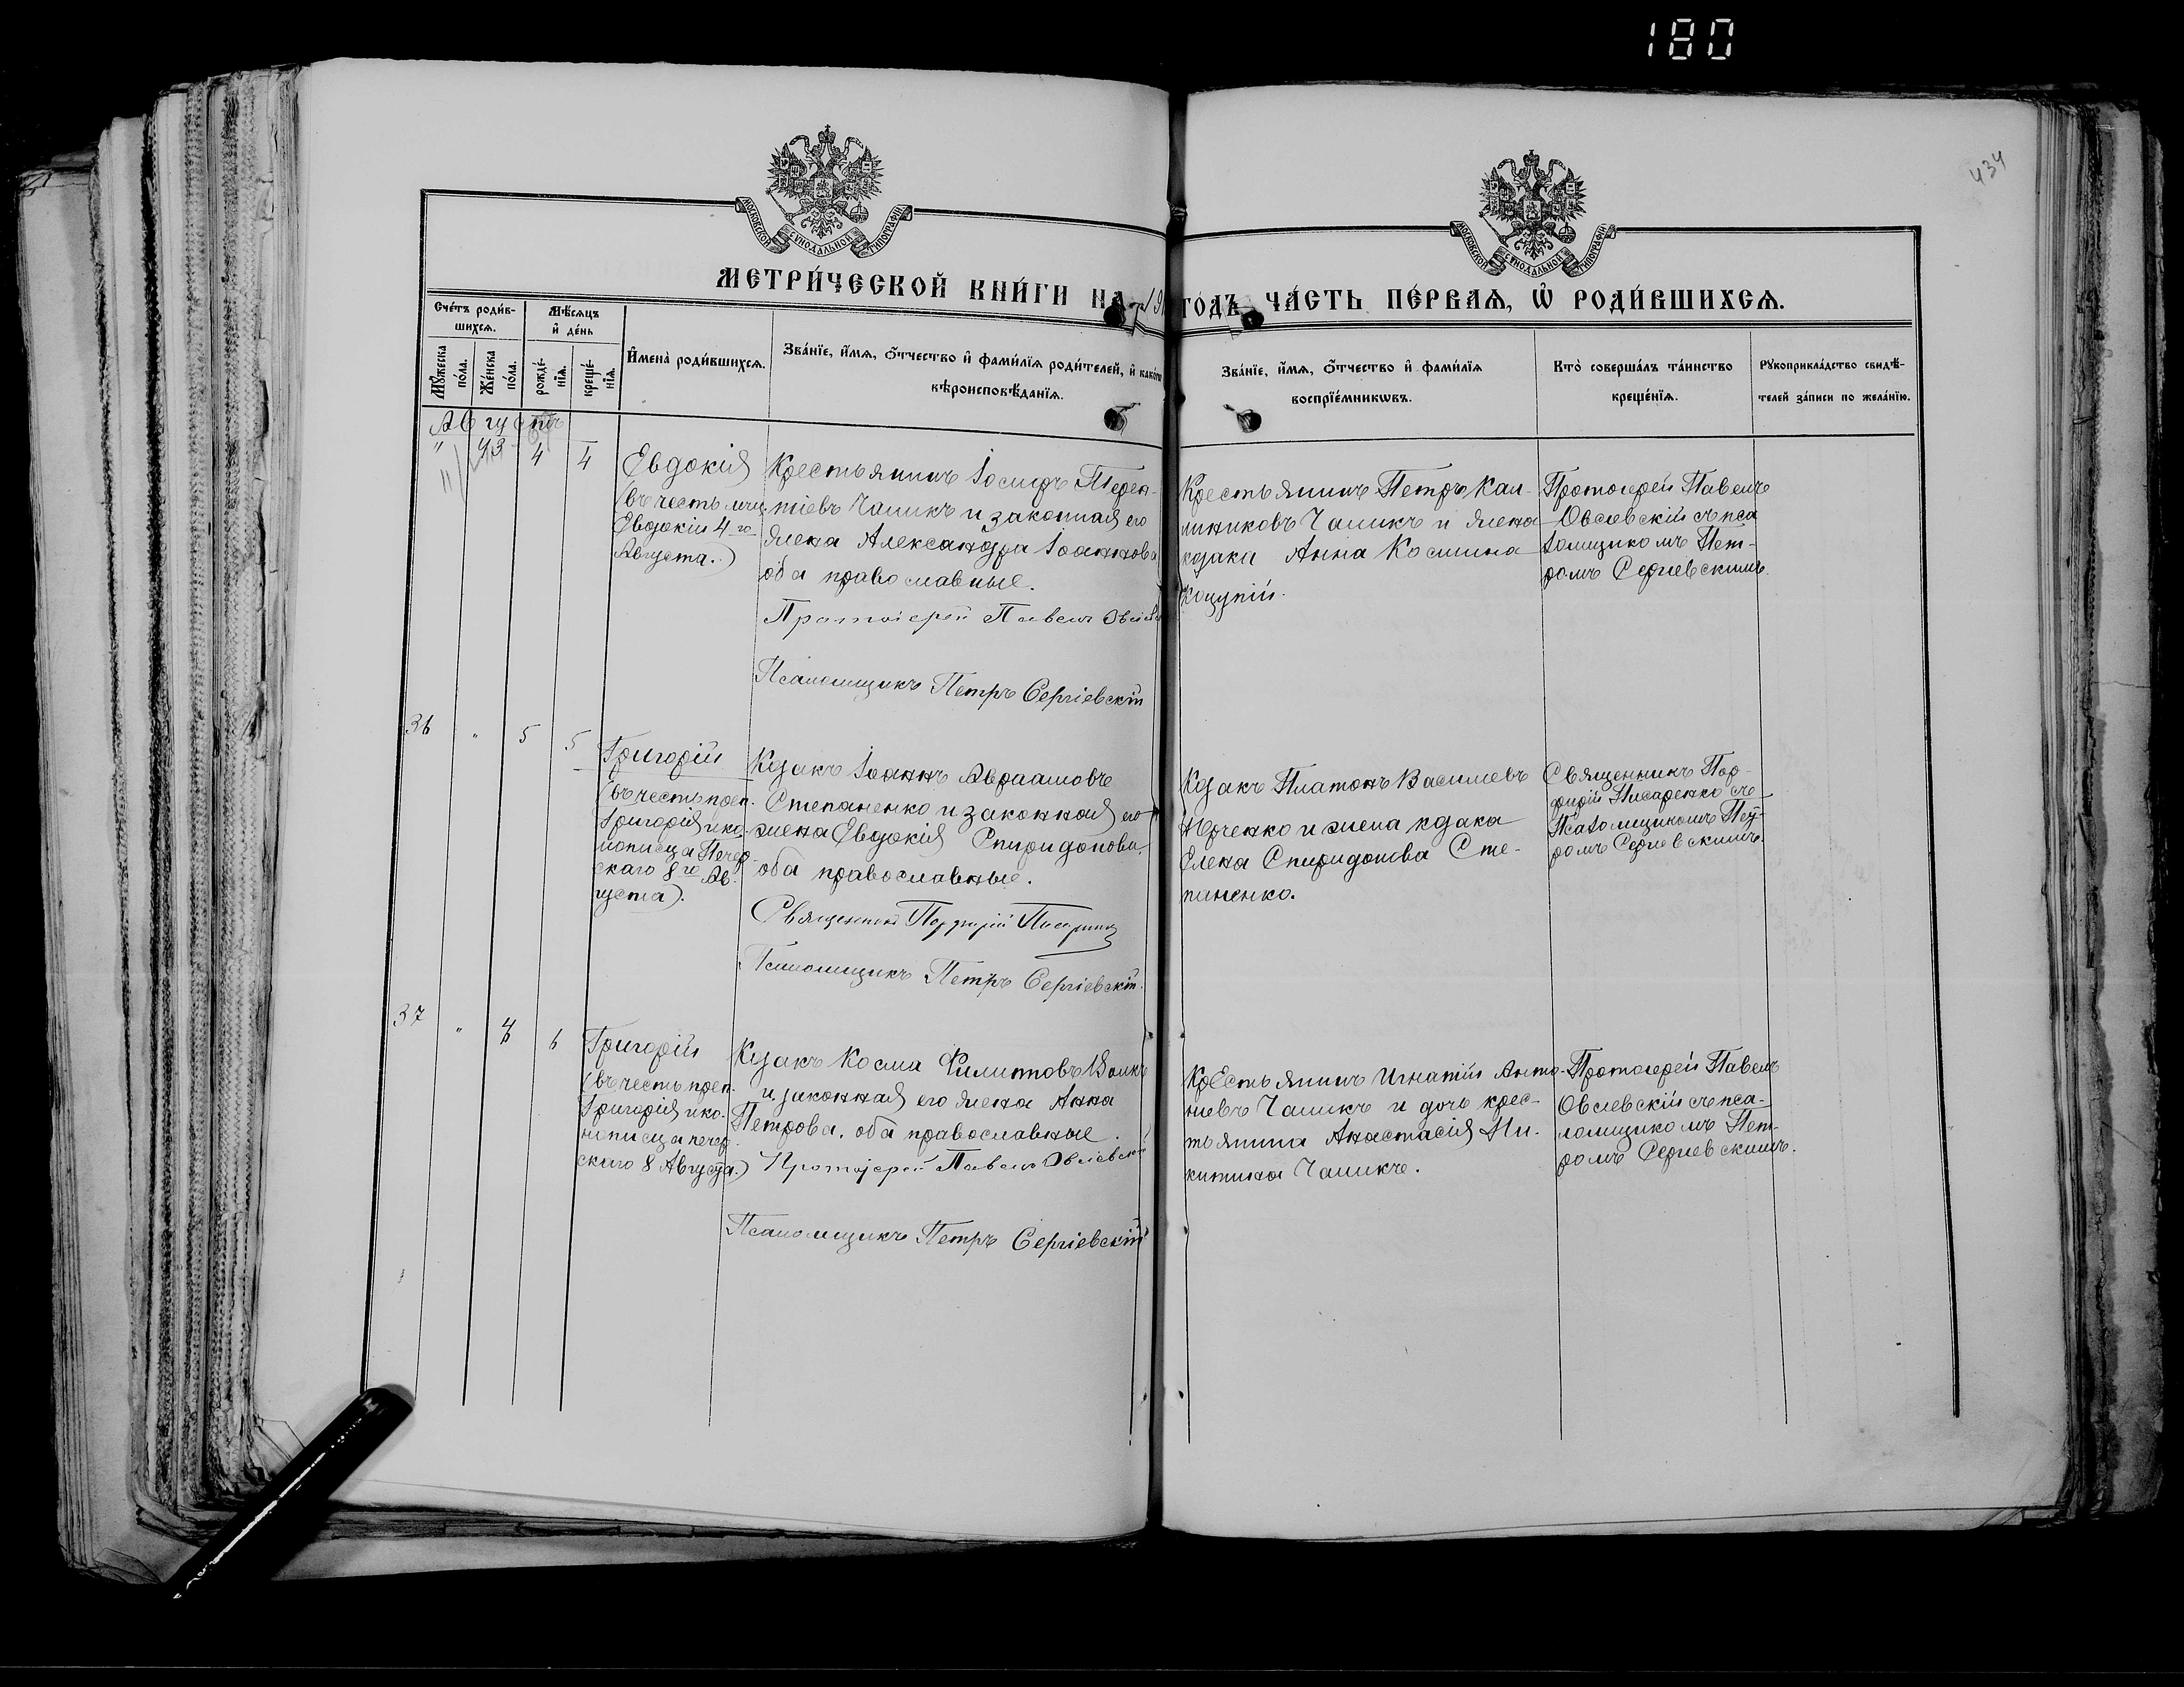 180
434
МОСКОВСКОЙ СѴНОДАЛЬНОЙ ТИПОГРАФІИ
МОСКОВСКОЙ СѴНОДАЛЬНОЙ ТИПОГРАФІИ
МЕТРИ́ЧЕСКОЙ КНИ́ГИ НА 19 ГО́ДЪ ЧА́СТЬ ПЕ́РВАѦ, Ѡ҆ РОДИ́ВШИХСѦ.
Сче́тъ роди́в-
шихсѧ.
Мѣ́сѧцъ
и҆ де́нь
Мꙋ́жеска
по́ла.
Же́нска
по́ла.
рожде́-
нїѧ.
креще́-
нїѧ.
И҆мена̀ роди́вшихсѧ.
Зва́нїе, и҆́мѧ, ѻ҆́тчество и҆ фами́лїѧ роди́телей, и҆ како́гѡ
вѣроисповѣ́данїѧ.
Зва́нїе, и҆́мѧ, ѻ҆́тчество и҆ фами́лїѧ
воспрїе́мникѡвъ.
Кто̀ соверша́лъ та́инство
креще́нїѧ.
Рꙋкоприкла́дство свидѣ́-
телей за́писи по жела́нїю.
Августъ
" 43 4 4
Евдокія
(въ честь мчц.
Евдокіи 4го
Августа.)
Крестьянинъ Іосифъ Терен-
тіевъ Чаликъ и законная его
жена Александра Іоаннова
оба православные.
Протоіерей Павелъ
Псаломщикъ Петръ Сергіевскій
Крестьянинъ Петръ Кал-
линиковъ Чаликъ и жена
козака Анна Космина
Протоіерей Павелъ
Овсіевскій съ пса
ломщикомъ Пет-
ромъ Сергіевскимъ.
36 " 5 5
Григорій
(въ честь преп.
Григорія ико-
нописца Печер-
скаго 8го Ав-
густа).
Козакъ Іоаннъ Авраамовъ
Степаненко и законная его
жена Евдокія Спиридонова,
оба православные.
Священникъ Порфирій Писаренко
Псаломщикъ Петръ Сергіевскій.
Козакъ Платонъ Василіевъ
Юрченко и жена козака
Елена Спиридонова Сте-
паненко.
Священникъ Пор-
фирій Писаренко съ
Псаломщикомъ Пет-
ромъ Сергіевскимъ.
37 " 6
Григорій
(въ честь преп.
Григорія ико-
нописца печер-
скаго 8 Августа.)
Козакъ Косма Филипповъ
и законная его жена Анна
Петрова, оба православные.
Протоіерей Павелъ Овсіевскій
Псаломщикъ Петръ Сергіевскій
Крестьянинъ Игнатій Анто-
ніевъ Чаликъ и дочь крес-
тьянина Анастасія Ни-
китина Чаликъ.
Протоіерей Павелъ
Овсіевскій съ пса-
ломщикомъ Пет-
ромъ Сергіевскимъ.